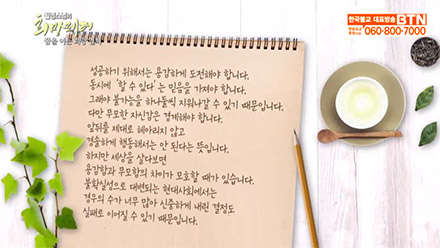 희망편지
한국불교 대표방송 BTN
060-800-7000
성공하기 위해서는 용감하게 도전해야 합니다.
동시에 '할 수 있다'는 믿음을 가져야 합니다.
그래야 불가능을 하나둘씩 지워나갈 수 있기 때문입니다.
다만 무모한 자신감은 경계해야 합니다.
앞뒤를 제대로 헤아리지 않고
경솔하게 행동해서는 안 된다는 뜻입니다.
하지만 세상을 살다보면
용감함과 무모함의 차이가 모호할 때가 있습니다.
불확실성으로 대변되는 현대사회에서는
경우의 수가 너무 많아 신중하게 내린 결정도
실패로 이어질 수 있기 때문입니다.